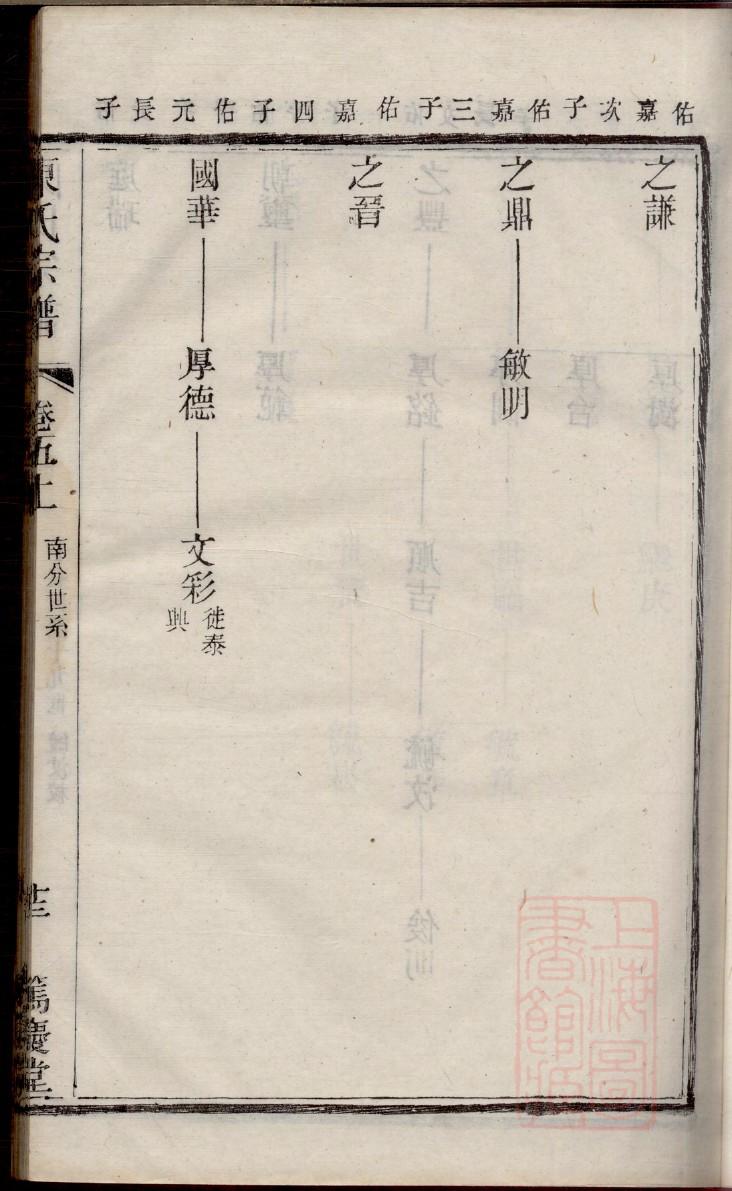 佑嘉次子佑嘉三子佑嘉四子佑元長子
之謙
之鼎 敏明
之晉
國華 厚德 文彩 徙泰興
陳氏宗譜 卷五上 南分世系 篤慶堂
上海圖書館藏